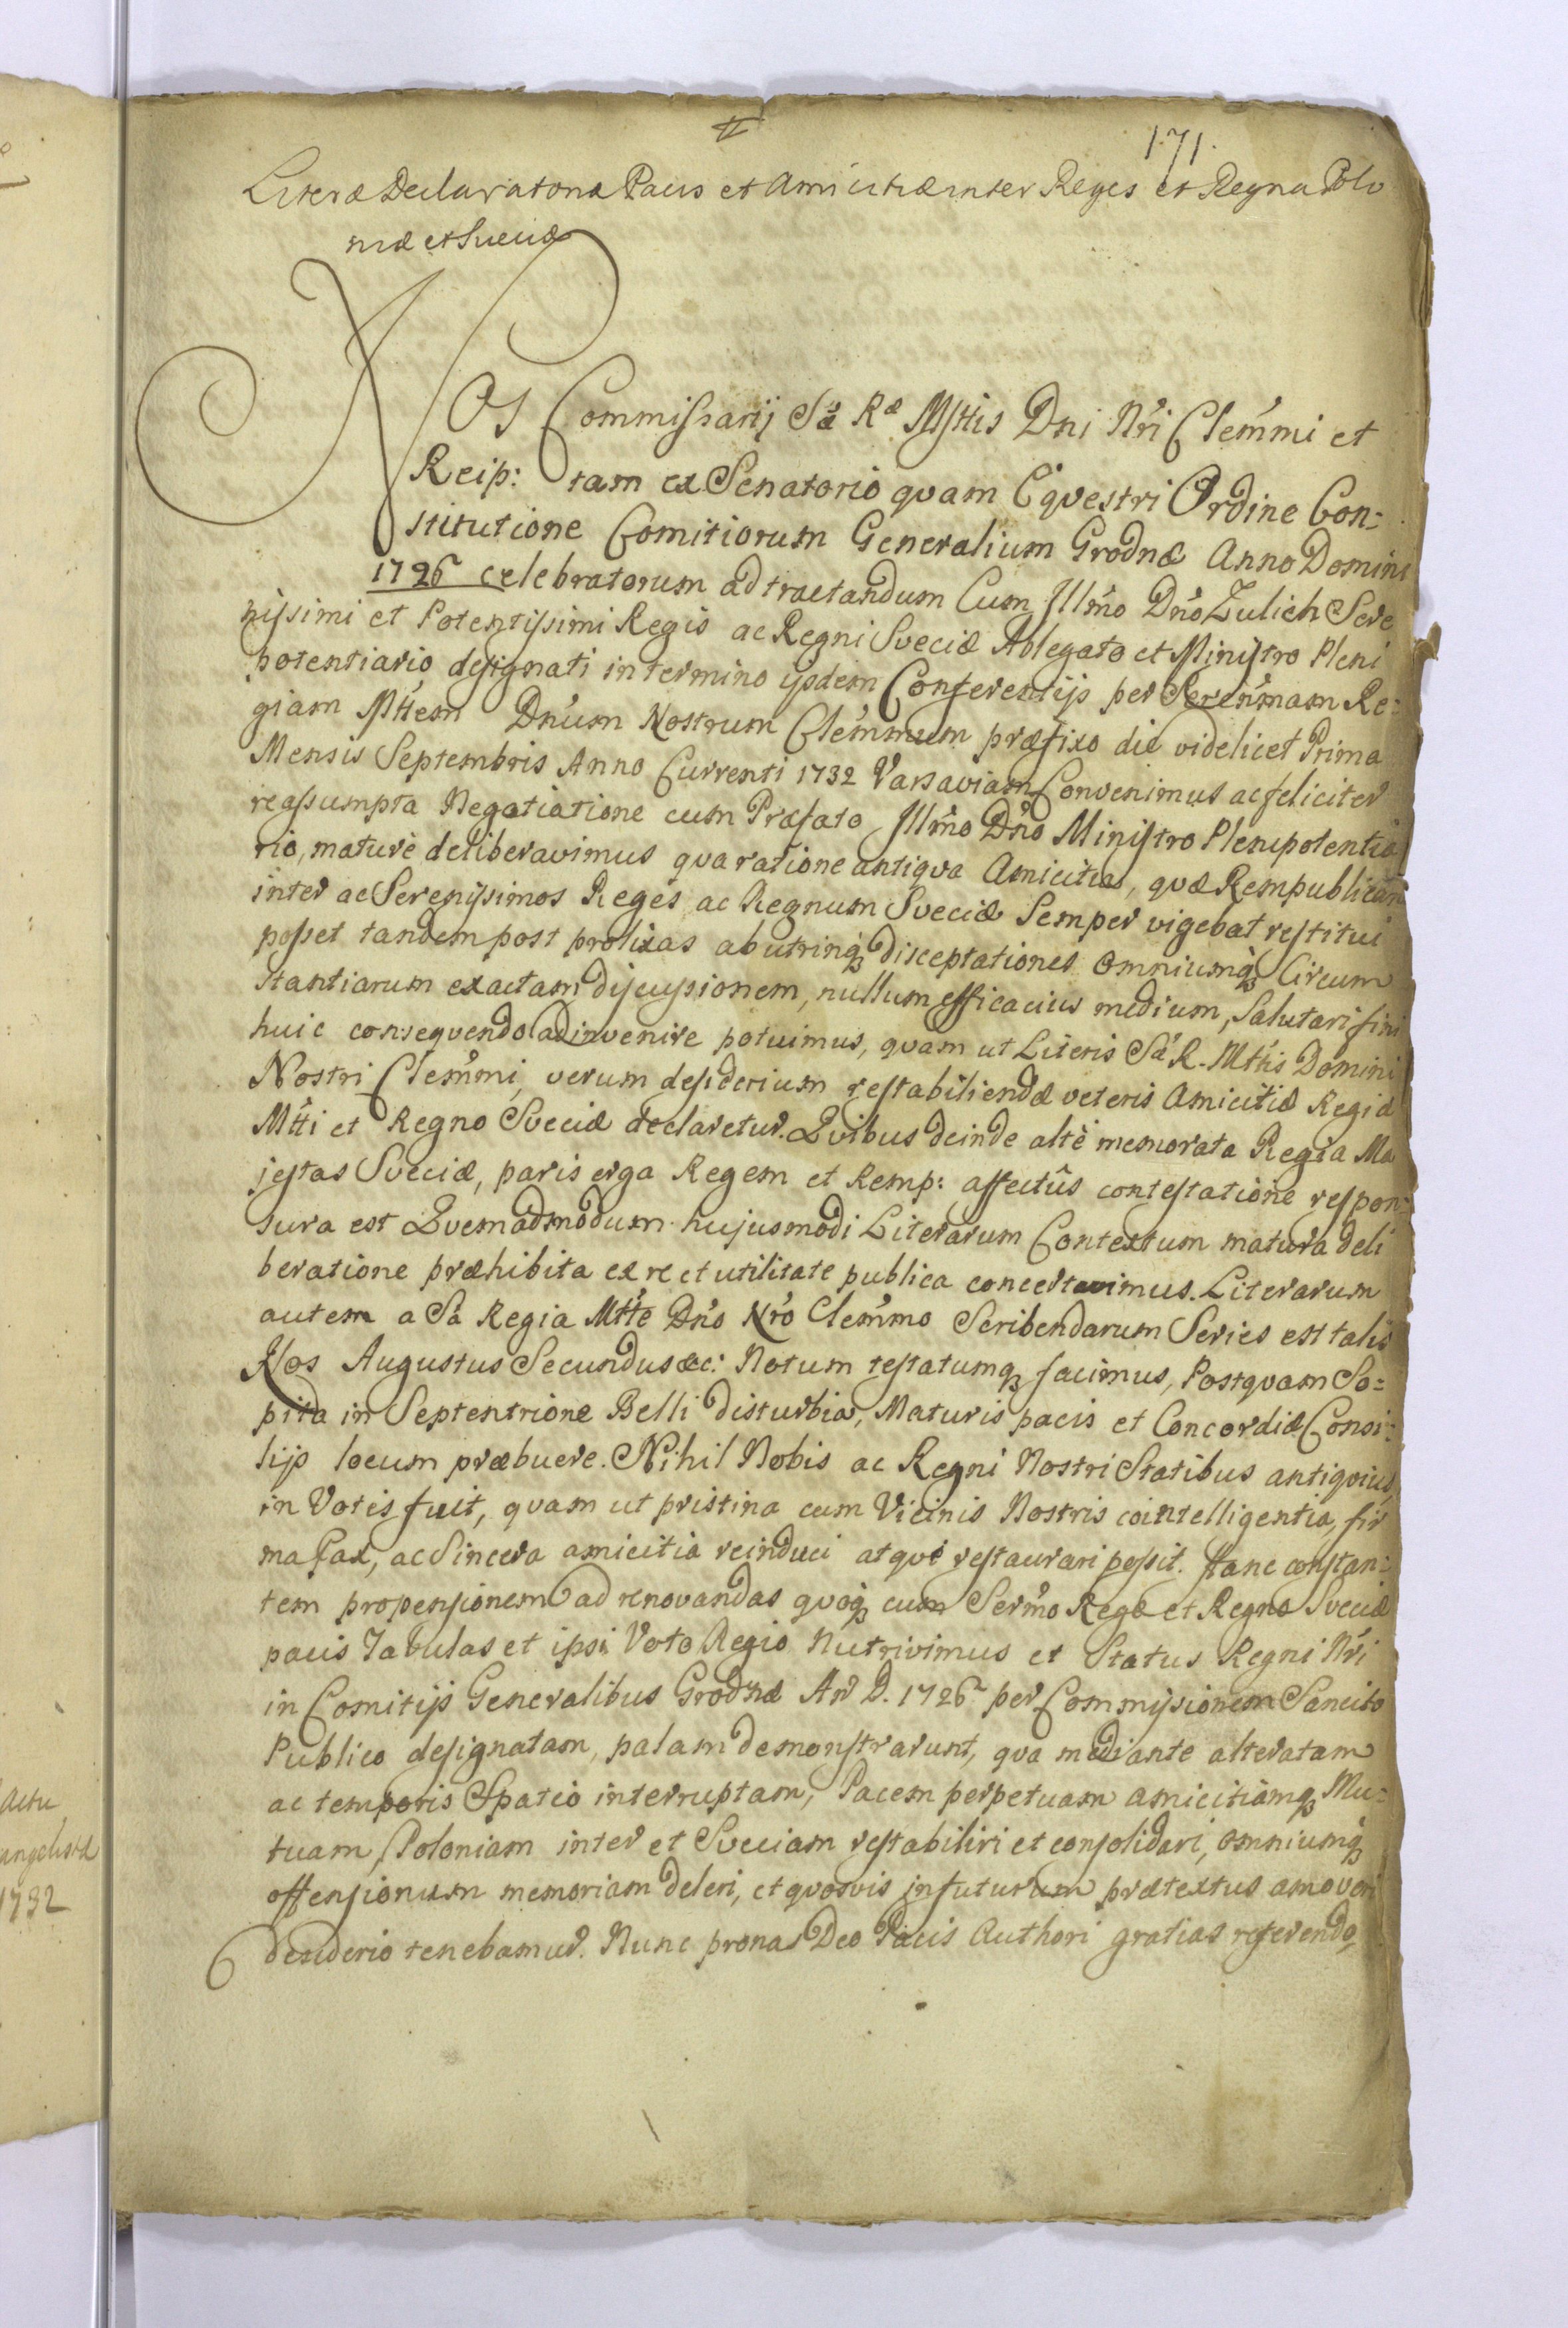 171.
Literæ Declaratoriæ Pacis et Amicitiæ inter Reges et Regna Polo
niæ et Sueciæ
Nos Commissarij Sæ Ræ Mttis Dni Nri Clemmi et
Reip: tam ex Senatorio qvam Eqvestri Ordine Con=
stitutione Comitiorum Generalium Grodnæ Anno Domini
1726 celebratorum ad tractandum Cum Illmo Dno Zulich Sere
nissimi et Potentissimi Regis ac Regni Sveciæ Ablegato et Ministro Pleni
potentiario designati in termino ijsdem Conferentijs per Serenmam Re=
giam Mttem Dnum Nostrum Clemmum præfixo die videlicet Prima
Mensis Septembris Anno Currenti 1732 Varsaviam Convenimus ac feliciter
reassumpta Negotiatione cum Præfato Illmo Dno Ministro Plenipotentia
rio, maturè deliberavimus qva ratione antiqva Amicitia, qvæ Rempublicam
inter ac Serenissimos Reges ac Regnum Sveciæ Semper vigebat restitui
posset tandem post prolixas ab utrinq; disceptationes omniumq; Circum
stantiarum exactam discussionem, nullum efficacius medium, Salutari fini
huic conseqvendo adinvenire potuimus, qvam ut Literis Sæ R. Mttis Domini
Nostri Clemmi, verum desiderium restabiliendæ veteris Amicitiæ Regiæ
Mtti et Regno Sveciæ declaretur. Qvibus deinde altè memorata Regia Ma
jestas Sveciæ, paris erga Regem et Remp: affectûs contestatione respon=
sura est Qvemadmodum hujusmodi Literarum Contextum matura deli
beratione præhibita ex re et utilitate publica concertavimus. Literarum
autem a Sa Regia Mtte Dno Nro Clemmo Scribendarum Series est talis
Nos Augustus Secundus &c: Notum testatumq; facimus, Postqvam So=
pita in Septentrione Belli disturbia, Maturis pacis et Concordiæ Consi=
lijs locum præbuere. Nihil Nobis ac Regni Nostri Statibus antiqvius
in Votis fuit, qvam ut pristina cum Vicinis Nostris cointelligentia, fir
ma Pax, ac Sincera amicitia reinduci atqve restaurari possit. Hanc constan=
tem propensionem ad renovandas qvoq; cum Sermo Rege et Regno Sveciæ
pacis Tabulas et ipsi Voto Regio Nutrivimus et Status Regni Nri
in Comitijs Generalibus Grodnæ An D. 1726 per Commissionem Sancito
Publico designatam, palam demonstrarunt, qva mediante alteratam
ac temporis Spatio interruptam, Pacem perpetuam amicitiamq; Mu=
tuam Poloniam inter et Sveciam restabiliri et consolidari, omniumq;
offensionum memoriam deleri, et qvosvis in futurum prætextus amoveri
desiderio tenebamur. Nunc pronas Deo Pacis Authori gratias referendo,
Actu
angelistæ
1732